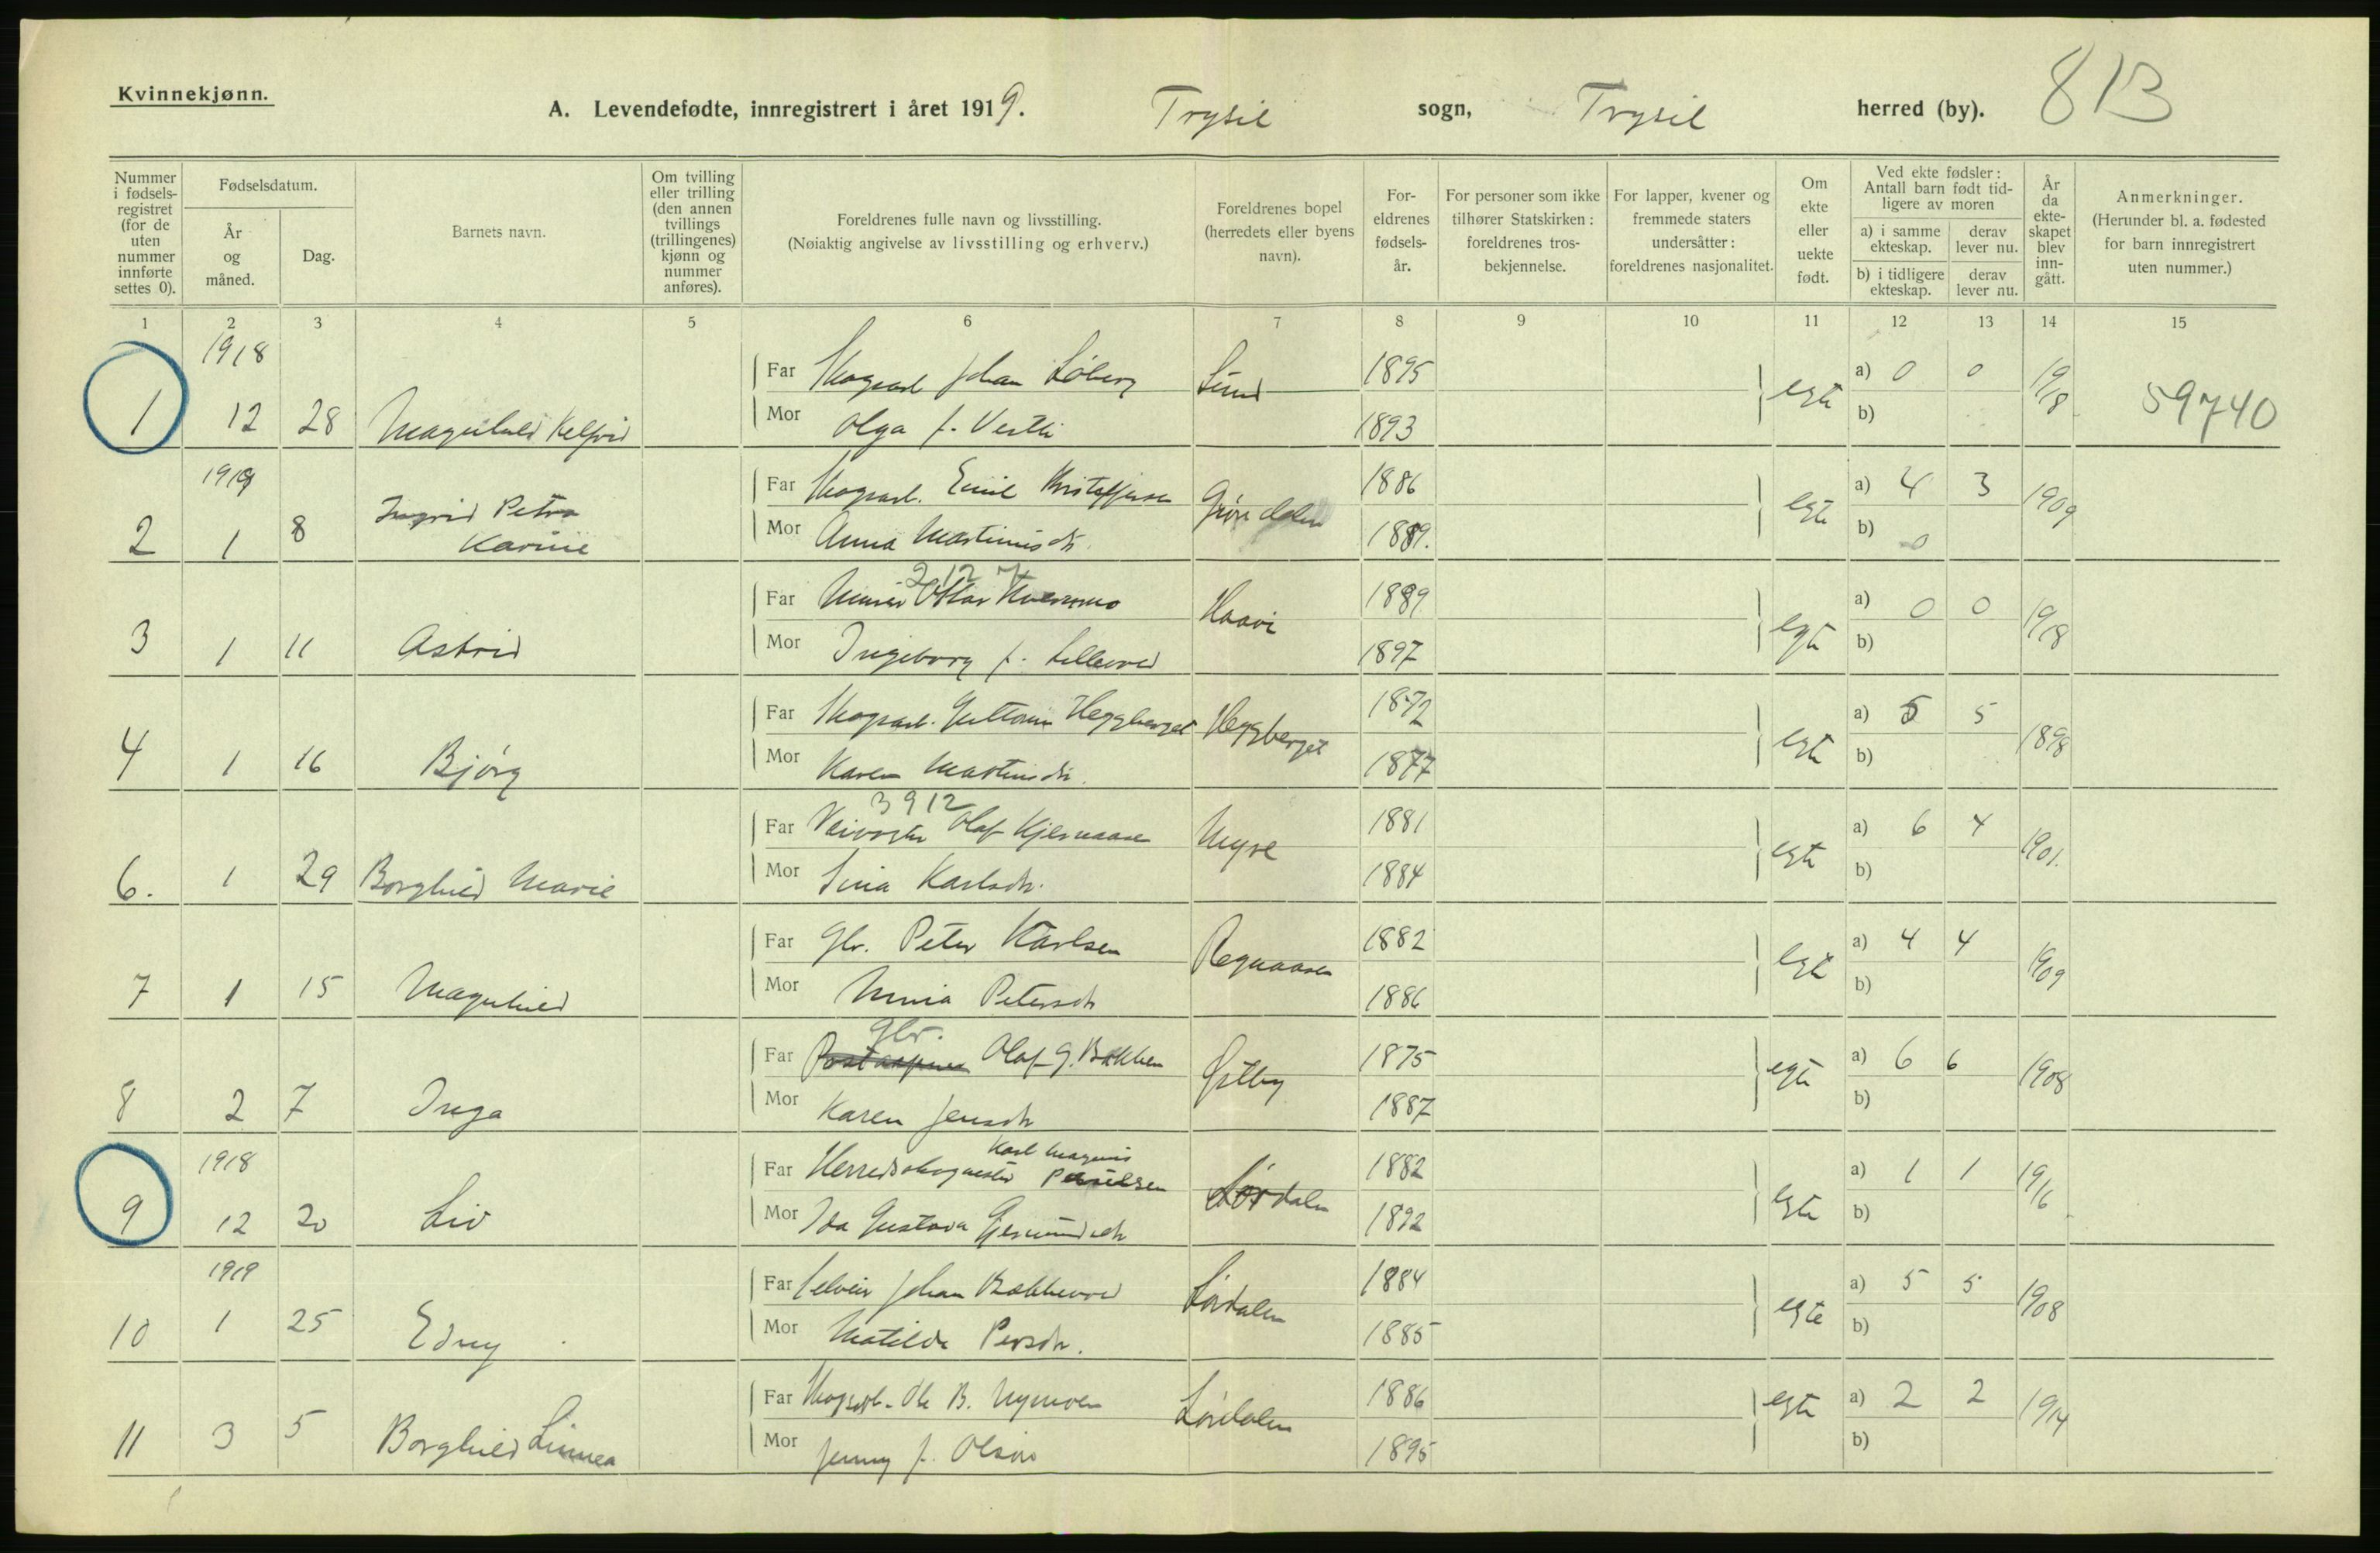 Kvinnekjønn.
A. Levendefødte, innregistrert i året 1919. Trysil sogn, Trysil herred (by). 813
Nummer i fødsels-registret (for de uten nummer innførte settes 0).
Fødselsdatum.
År og måned.
Dag.
Barnets navn.
Om tvilling eller trilling (den annen tvillings (trillingenes) kjønn og nummer anføres).
Foreldrenes fulle navn og livsstilling.
(Nøiaktig angivelse av livsstilling og erhverv.)
Foreldrenes bopel (herredets eller byens navn).
For-eldrenes fødsels-år.
For personer som ikke tilhører Statskirken: foreldrenes tros-bekjennelse.
For lapper, kvener og fremmede staters undersåtter: foreldrenes nasjonalitet.
Om ekte eller uekte født.
Ved ekte fødsler: Antall barn født tid-ligere av moren
a) i samme ekteskap.
derav lever nu.
b) i tidligere ekteskap.
derav lever nu.
År da ekte-skapet blev inn-gått.
Anmerkninger.
(Herunder bl. a. fødested for barn innregistrert uten nummer.)
1 2 3 4 5 6 7 8 9 10 11 12 13 14 15
1918
Far Skogsarb Johan Løberg Lund 1895 a) 0 0
1 12 28 Magnhild Mor Olga f. 1893 egte b) 1918 59740
1919
Far Skogsarb. Emil Kristoffersen 1886 a) 4 3
2 1 8 Ingrid Petra Karine Mor Anna Martinusdtr. Grøndalen 1889. egte b) 0 1909
212 7
Far Murer Ottar 1889 a) 0 0
3 1 11 Astrid Mor Ingeborg f. 1897 egte b) 1918
Far Skogsarb. Guttorm Heggberget Heggberget 1872 a) 5 5
4 1 16 Bjørg Mor Karen Martinsdtr. 1877 egte b) 1898
3912
Far Veivogter Olaf Kjernaasen Nyse 1881 a) 6 4
6. 1 29 Borghild Marie Mor Lina Karlsdtr. 1884 egte b) 1901.
Far Gbr. Peter Karlsen Regnaasen 1882 a) 4 4
7 1 15 Magnhild Mor Petersdtr 1886 egte b) 1909
Gbr.
Far Postaapner Olaf G. Bakken Østby 1875 a) 6 6
8 2 7 Inga Mor Karen Jensdtr 1887 egte b) 1908
1918 Karl Magnus
Far Herredsskogmester Paulsen Lørdalen 1882 a) 1 1
9 12 20 Liv Mor Ida Gustava Gjermundsdtr 1892 egte b) 1916
1919
Far Selveier Johan Lørdalen 1884 a) 5 5
10 1 25 Edny Mor Matilde Persdtr. 1885 egte b) 1908
Far Skogsarb. Ole B. Nymoen Lørdalen 1886 a) 2 2
11 3 5 Borghild Linnea Mor Jenny f. Olsen 1895 egte b) 1914